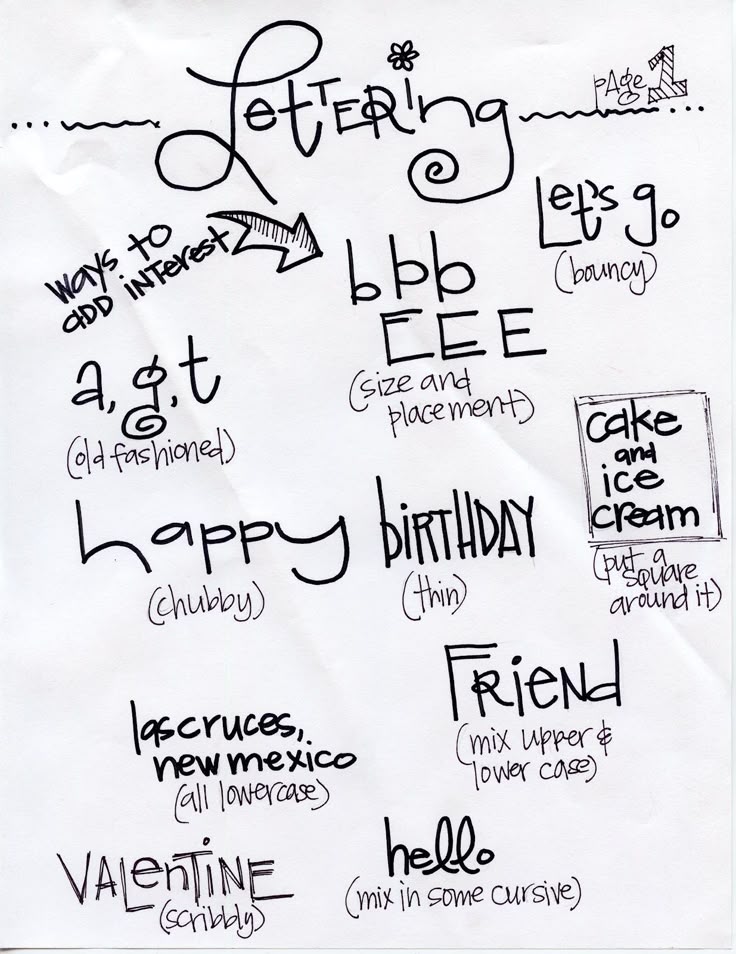 LetTERing
pAge 1
ways to
ADD iNTerest
Let's go
(bouncy)
bbb
EEE
(size and
placement)
a, g, t
(old fashioned)
cake
and
ice
cream
(put a
square
around it)
happy
(chubby)
biRTHDAY
(thin)
FRieNd
(mix upper &
lower case)
las cruces,
new mexico
(all lowercase)
VALenTINE
(scribbly)
hello
(mix in some cursive)